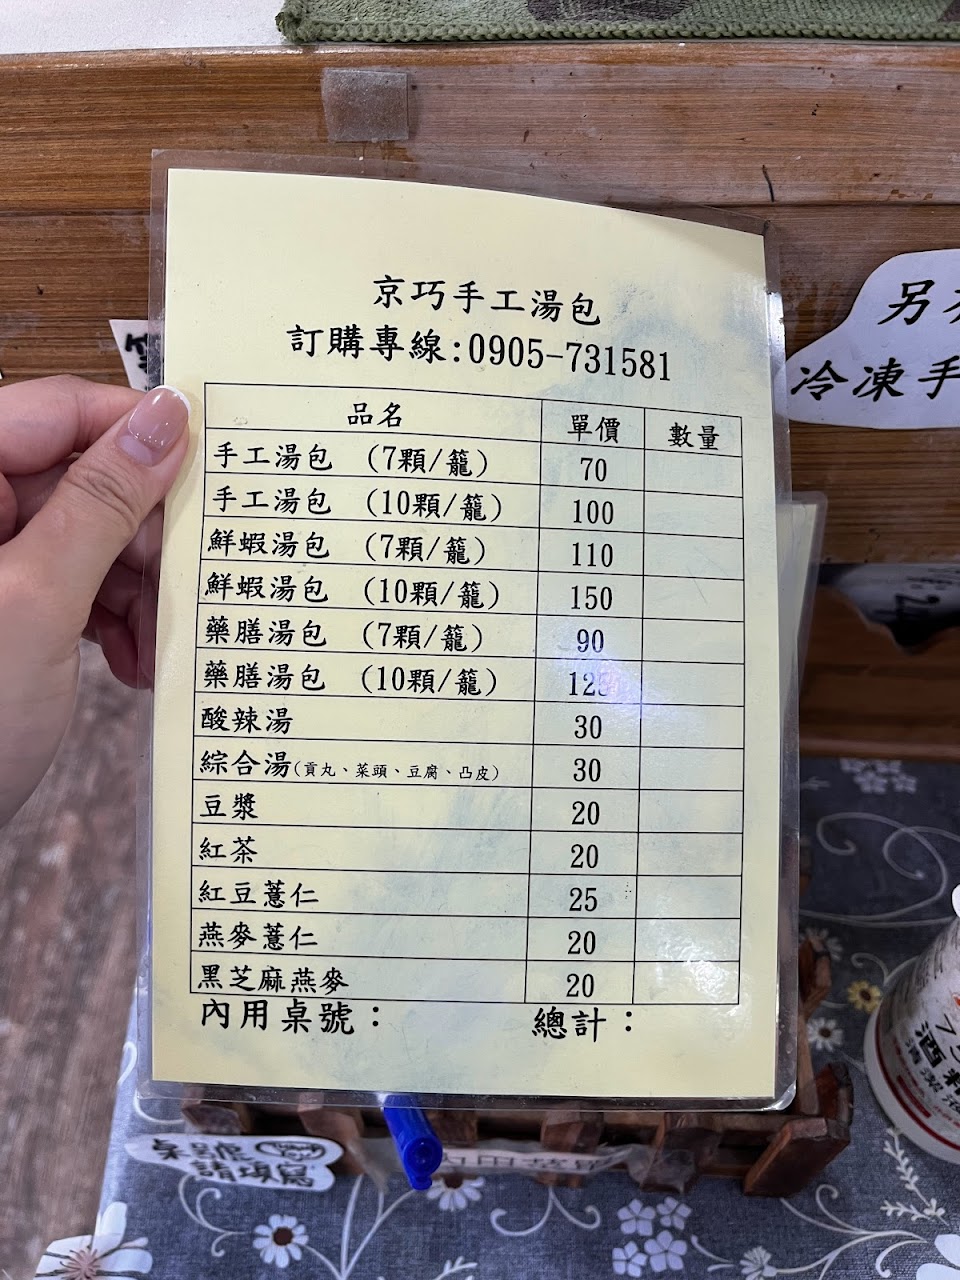 京巧手工湯包
訂購專線:0905-731581
品名 單價 數量
手工湯包 (7顆/籠) 70
手工湯包 (10顆/籠) 100
鮮蝦湯包 (7顆/籠) 110
鮮蝦湯包 (10顆/籠) 150
藥膳湯包 (7顆/籠) 90
藥膳湯包 (10顆/籠) 125
酸辣湯 30
綜合湯(貢丸、菜頭、豆腐、凸皮) 30
豆漿 20
紅茶 20
紅豆薏仁 25
燕麥薏仁 20
黑芝麻燕麥 20
內用桌號： 總計：
另
冷凍手
桌號
請填寫
酒精